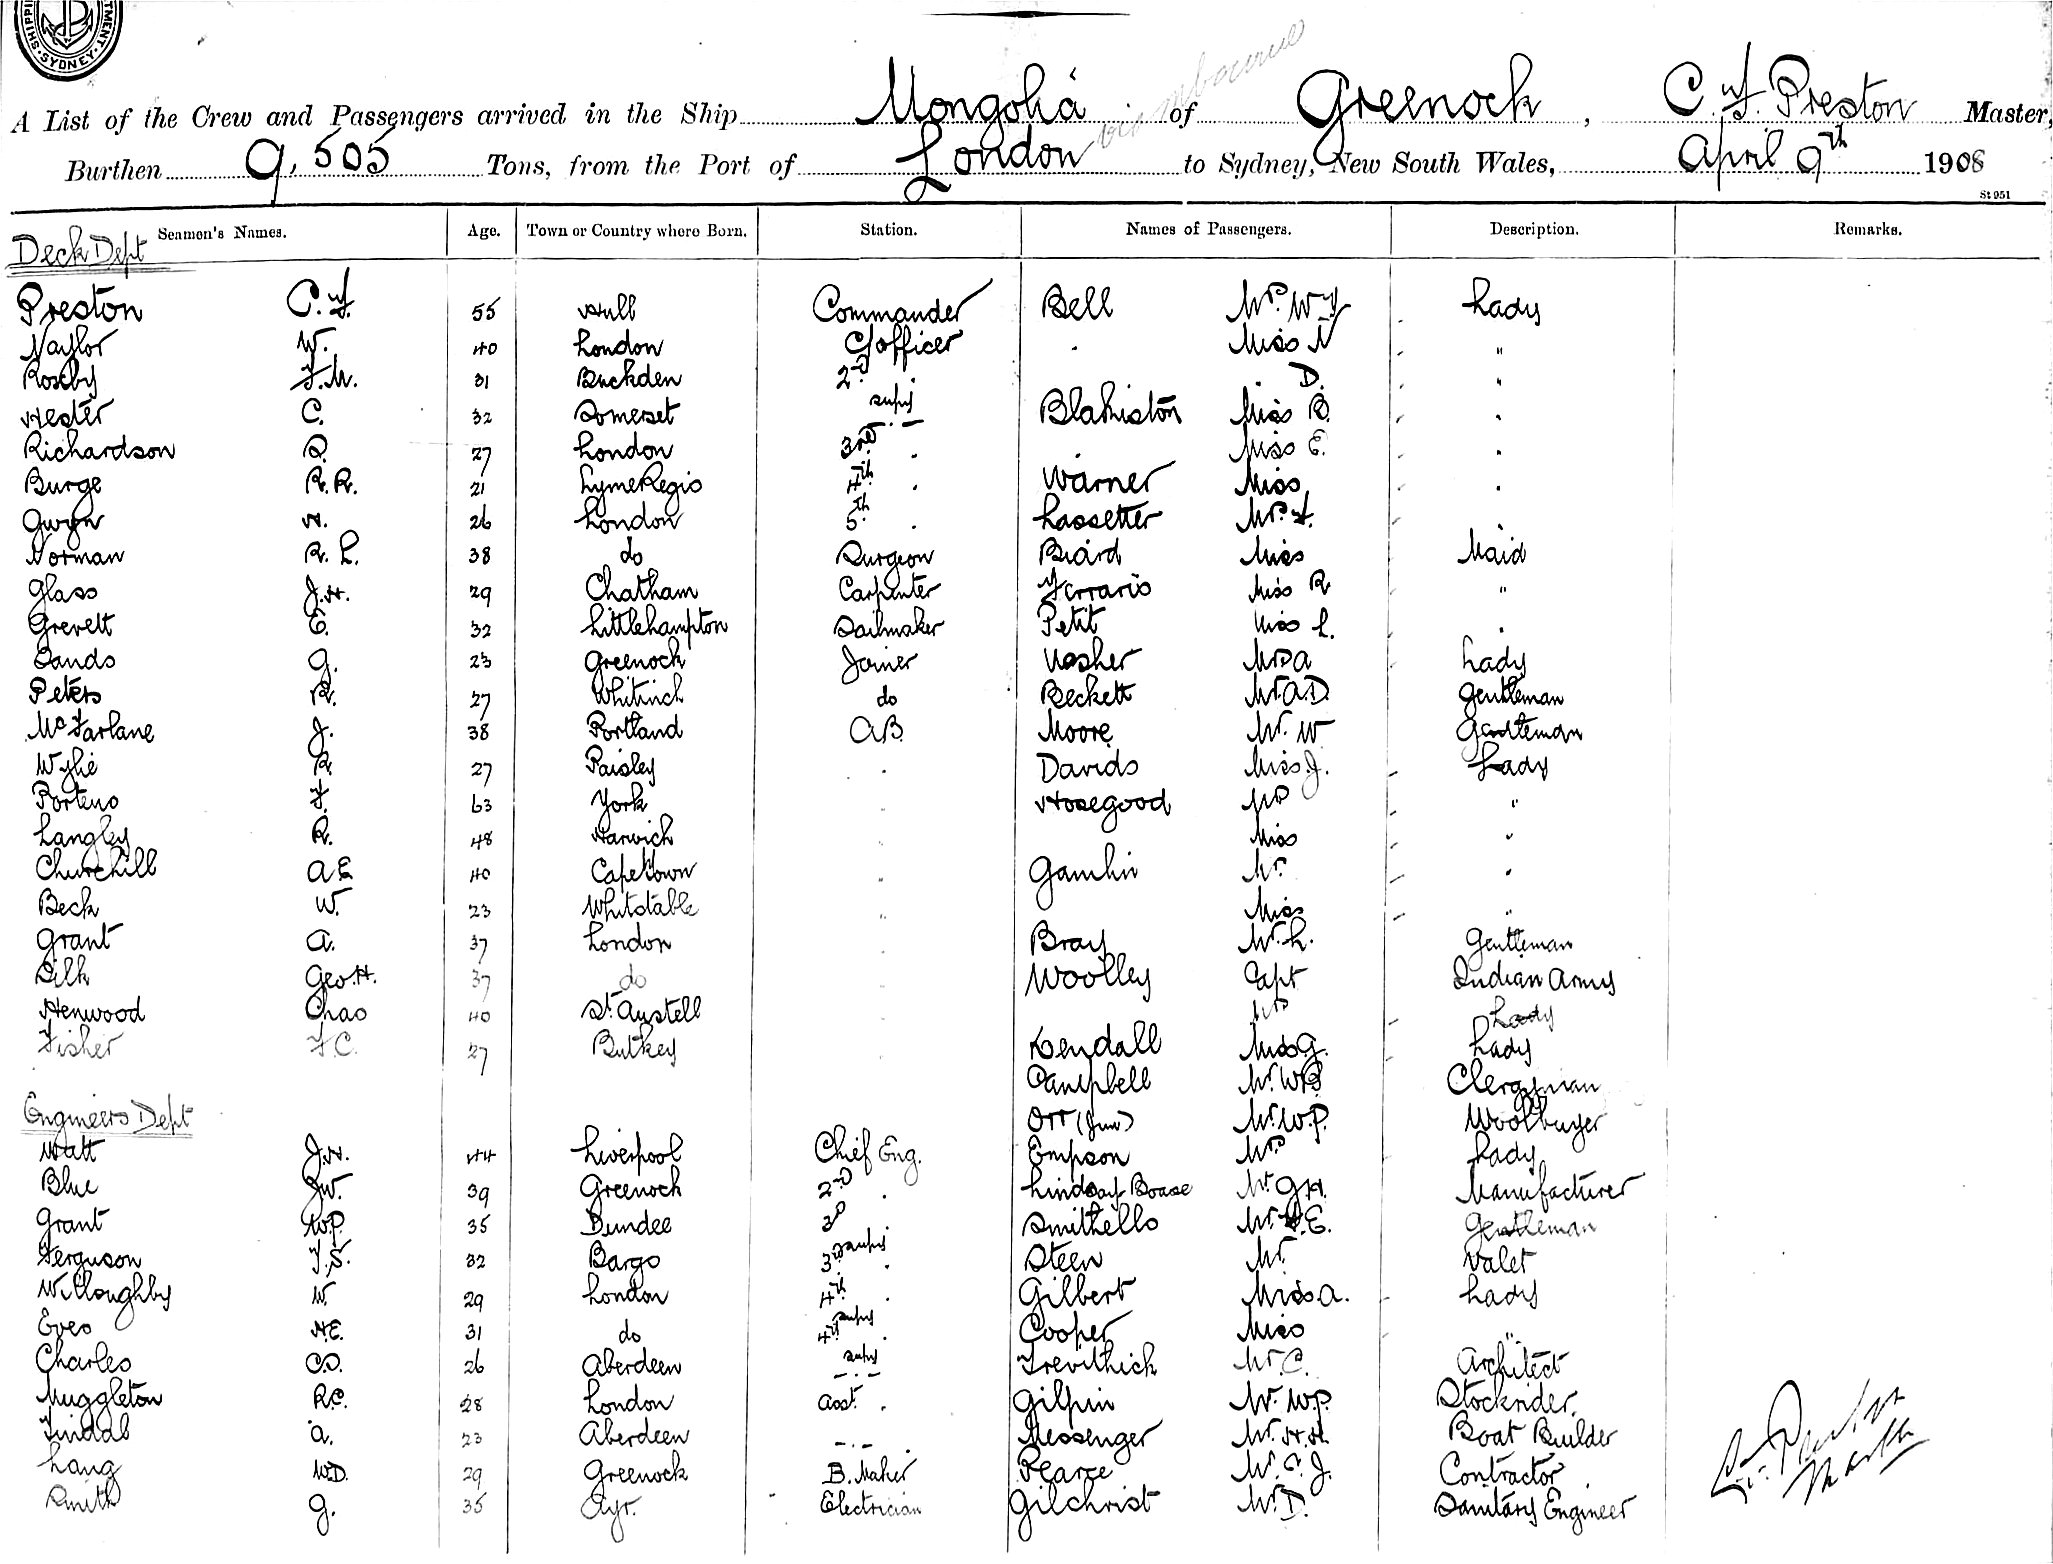 SHIPPI TMENT. SYDNEY.
via Melbourne
A List of the Crew and Passengers arrived in the Ship Mongolia of Greenock, C. F. Preston Master,
Burthen 9,505 Tons, from the Port of London to Sydney, New South Wales, April 9th 1908
St 951
Seamen's Names. Age. Town or Country where Born. Station. Names of Passengers. Description. Remarks.
Deck Dept
Preston C. F. 55 Hull Commander Bell Mrs W F Lady
Naylor W. 40 London C/officer . Miss N "
Roseby F. M. 31 Buckden 2nd . . D. "
Hester C. 32 Somerset supy Blakiston Miss B. "
Richardson S. 27 London 3rd . . Miss E. "
Burge R. R. 21 Lyme Regis 4th . Warner Miss "
Gwyn H. 26 London 5th . Lassetter Mrs F. "
Norman R. L. 38 do Surgeon Biard Miss Maid
Glass J. H. 29 Chatham Carpenter Ferraris Miss R "
Grevett E. 32 Littlehampton Sailmaker Petit Miss L. "
Sands G. 23 Greenock Joiner Vosher Mrs A Lady
Peters R. 27 do Beckett Mr A. D. Gentleman
McFarlane J. 38 Portland A.B. Moore Mr. W Gentleman
Wylie R. 27 Paisley " Davids Miss J. Lady
Porteus F. 63 York " Hosegood Mrs "
Langley R. 48 Harwich " Miss "
Churchill A E 40 Cape Town " Gamlin Mr "
Beck W. 23 Whitstable " Miss "
Grant A. 37 London " Bray Mr. L. Gentleman
Silk Geo. H. 37 do " Woolley Capt Indian Army
Henwood Chas 40 St. Austell " Mrs Lady
Fisher F C. 27 " Kendall Miss G. Lady
Campbell Mr. W B Clergyman
Engineers Dept Orr (Jun) Mr. W. P. Woolbuyer
Watt J. H. 44 Liverpool Chief Eng. Empson Mrs Lady
Blue J W. 39 Greenock 2nd . Lindsay Boase Mr G H. Manufacturer
Grant W. P. 35 Dundee 3rd Smithells Mr. E. Gentleman
Ferguson T. S. 32 Bargo 3rd supy . Steen Mr. Valet
Willoughby W. 29 London 4th . Gilbert Miss A. Lady
Eves H. E. 31 do 4th supy . Cooper Miss "
Charles C. S. 26 Aberdeen supy Trevithick Mr C. Architect
Muggleton R. C. 28 London Asst. . Gilpin Mr. W. P. Stockrider.
Tindal A. 23 Aberdeen - . - Messenger Mr. H. H. Boat Builder
Lang W. D. 29 Greenock B. Maker Pearce Mr. C. J. Contractor
Smith G. 35 Ayr. Electrician Gilchrist Mr. D. Sanitary Engineer